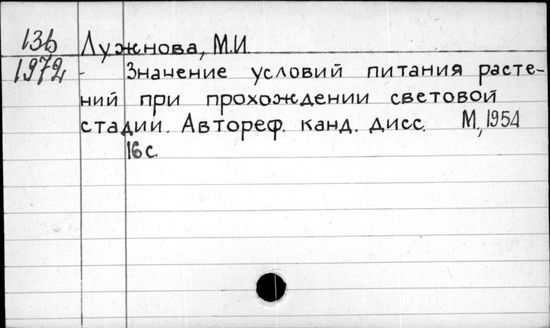 136 Лужнова, М.И
1972 - Значение условий питания расте-
ний при прохождении световой
стадии. Автореф. канд. дисс. М, 1954
16 с.